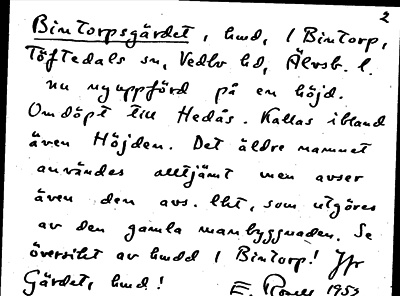 2
Bintorpsgärdet, hmd, 1 Bintorp,
Töftedals sn, Vedbo hd, Älvsb. l.
nu nyuppförd på en höjd.
Omdöpt till Hedås. Kallas ibland
även Höjden. Det äldre namnet
användes alltjämt men avser
även den avs. lht, som utgöres
av den gamla manbyggnaden. Se
översikt av hmdd 1 Bintorp! Jfr
Gärdet, hmd! E. 1953